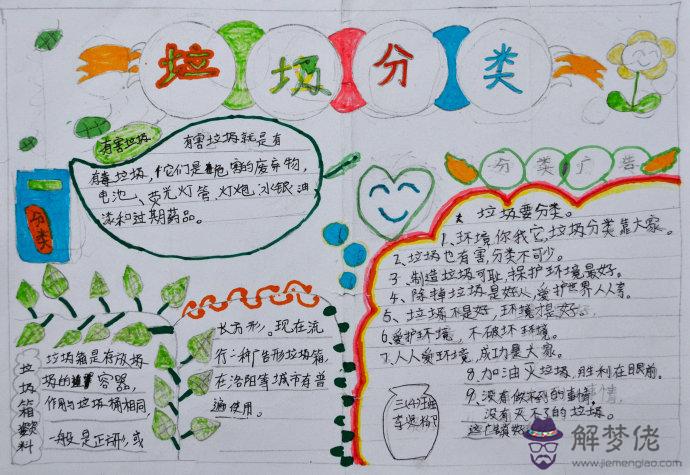 垃圾分类
有害垃圾
有害垃圾就是有
有毒垃圾,它们是有害的废弃物,
电池、荧光灯管、灯炮、水银、油
漆和过期药品。
分类
分类广告
垃圾要分类。
1、环境你我它,垃圾分类靠大家。
2、垃圾也有害,分类不可少。
3、制造垃圾可耻,保护环境最好。
4、除掉垃圾是好人,爱护世界人人享。
5、垃圾不是好,环境才是好。
6、爱护环境,不破坏环境。
7、人人爱环境,成功是大家。
8、加油灭垃圾,胜利在眼前。
9、没有做不到的事情,
没有灭不了的垃圾。
垃圾箱资料
垃圾箱是存放垃
圾的容器,
作用与垃圾桶相同,
一般是正方形,或
长方形。现在流
行一种广告形垃圾箱,
在洛阳等城市有普
遍使用。
解梦佬
www.jiemenglao.com